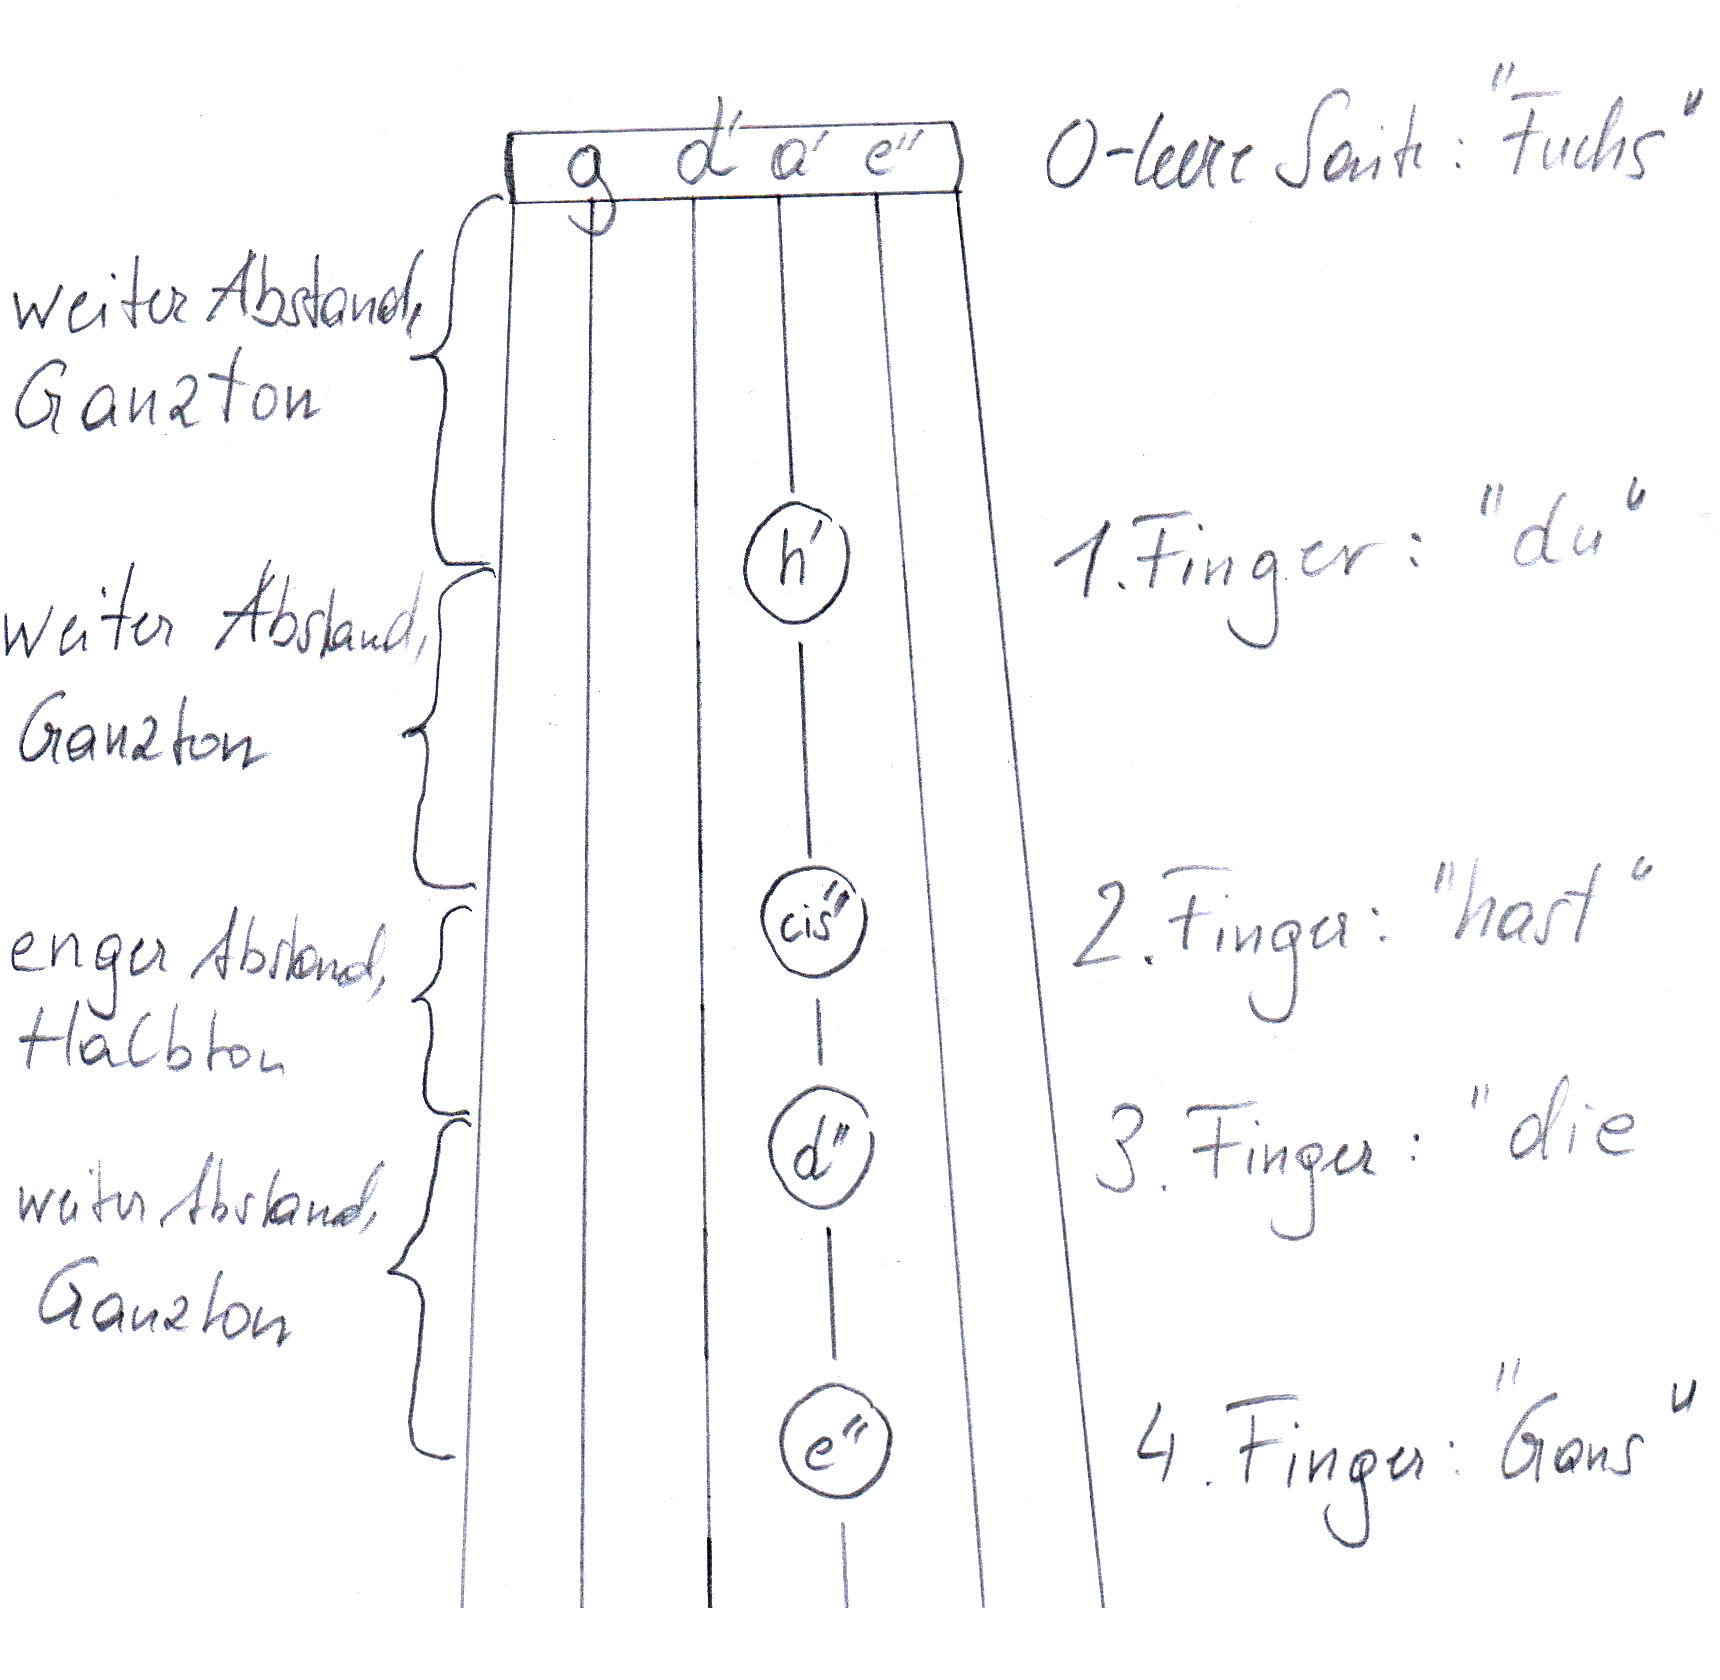 g d' a' e''
0-leere Saite: "Fuchs"
weiter Abstand,
Ganzton
h'
1. Finger: "du"
weiter Abstand,
Ganzton
cis''
2. Finger: "hast"
enger Abstand,
Halbton
d''
3. Finger: "die
weiter Abstand,
Ganzton
e''
4. Finger: "Gans"